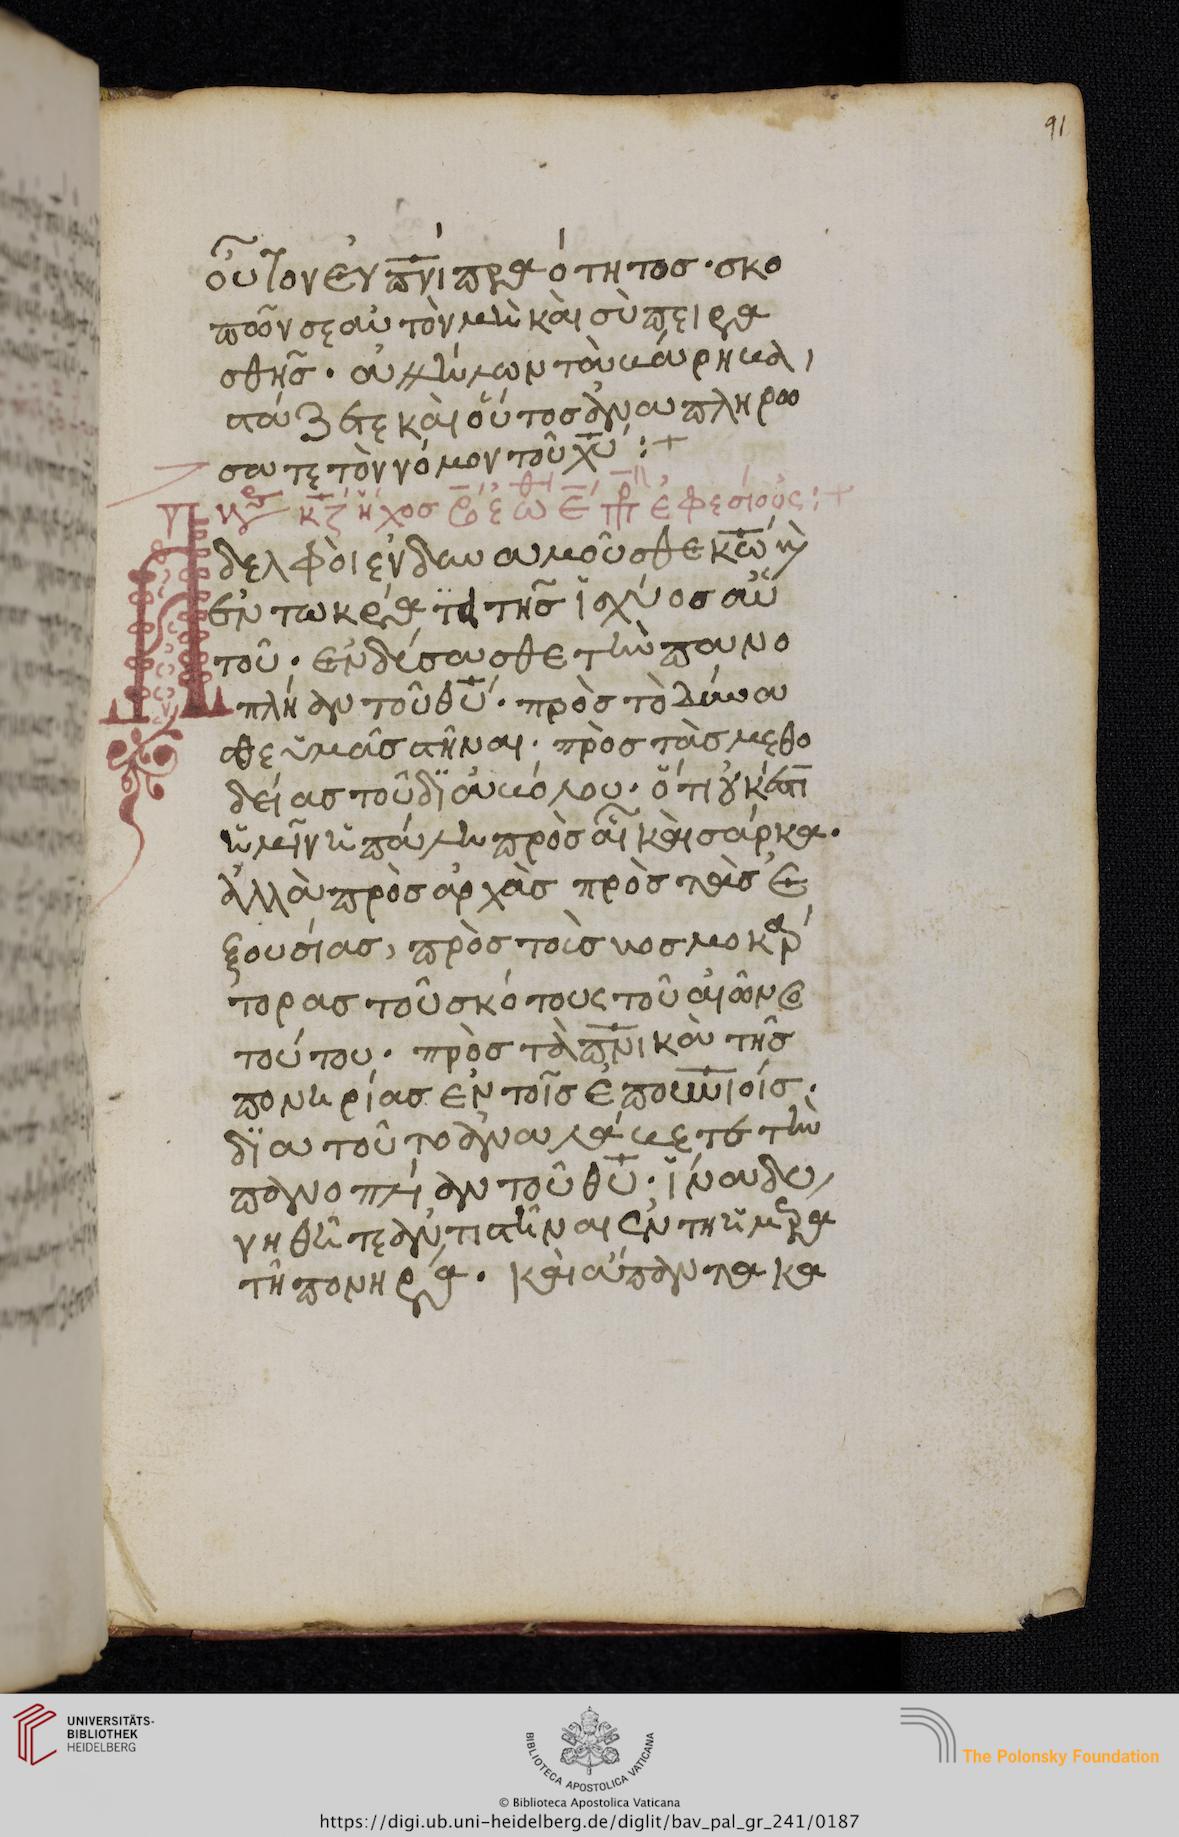 91
οὗτον ἐν πνι πραότητοσ · σκο
ποῶν σεαυτὸν μὴ καὶ σὺ πειρα
σθῆσ · ἀλλήλων τὰ βάρη βα
στάζετε καὶ οὕτοσ ἀναπληρώ
σατε τὸν νόμον τοῦ χυ :+
κζ ἦχοσ ἐφεσίους :+
Αδελφοὶ ἐνδυναμοῦσθε ἐν κω κὶ
ἐν τω κράτϊ τῆσ ἰσχύοσ αὐ
τοῦ · ἐνδύσασθε τὴν πανο
πλήαν τοῦ θυ · πρὸσ τὸ δύνα
σθε ὑμᾶσ στῆναι · πρὸσ τὰσ μεθο
δείασ τοῦ δϊαβόλου · ὅτι οὐκ ἔστι
ὑμῖν ἡ πάλη πρὸσ αἷ καὶ σάρκα ·
ἀλλὰ πρὸσ ἀρχὰσ πρὸσ τὰσ ἐ
ξουσίασ, πρὸσ τοὶσ κοσμοκρά
τορασ τοῦ σκότους τοῦ αἰῶνοσ
τούτου · πρὸσ τὰ πνικὰ τῆσ
πονηρίασ ἐν τοῖσ ἐπουνίοίσ ·
δϊατοῦτο ἀναλάβετε τὴν
πανοπλήαν τοῦ θυ · ἵνα δυ
νηθῆτε ἀντιστῆναι ἐν τη ἡμέρα
τῆ πονηρᾶ · καὶ ἅπαντα κα
UNIVERSITÄTS-
BIBLIOTHEK
HEIDELBERG
BIBLIOTECA APOSTOLICA VATICANA
The Polonsky Foundation
© Biblioteca Apostolica Vaticana
https://digi.ub.uni-heidelberg.de/diglit/bav_pal_gr_241/0187